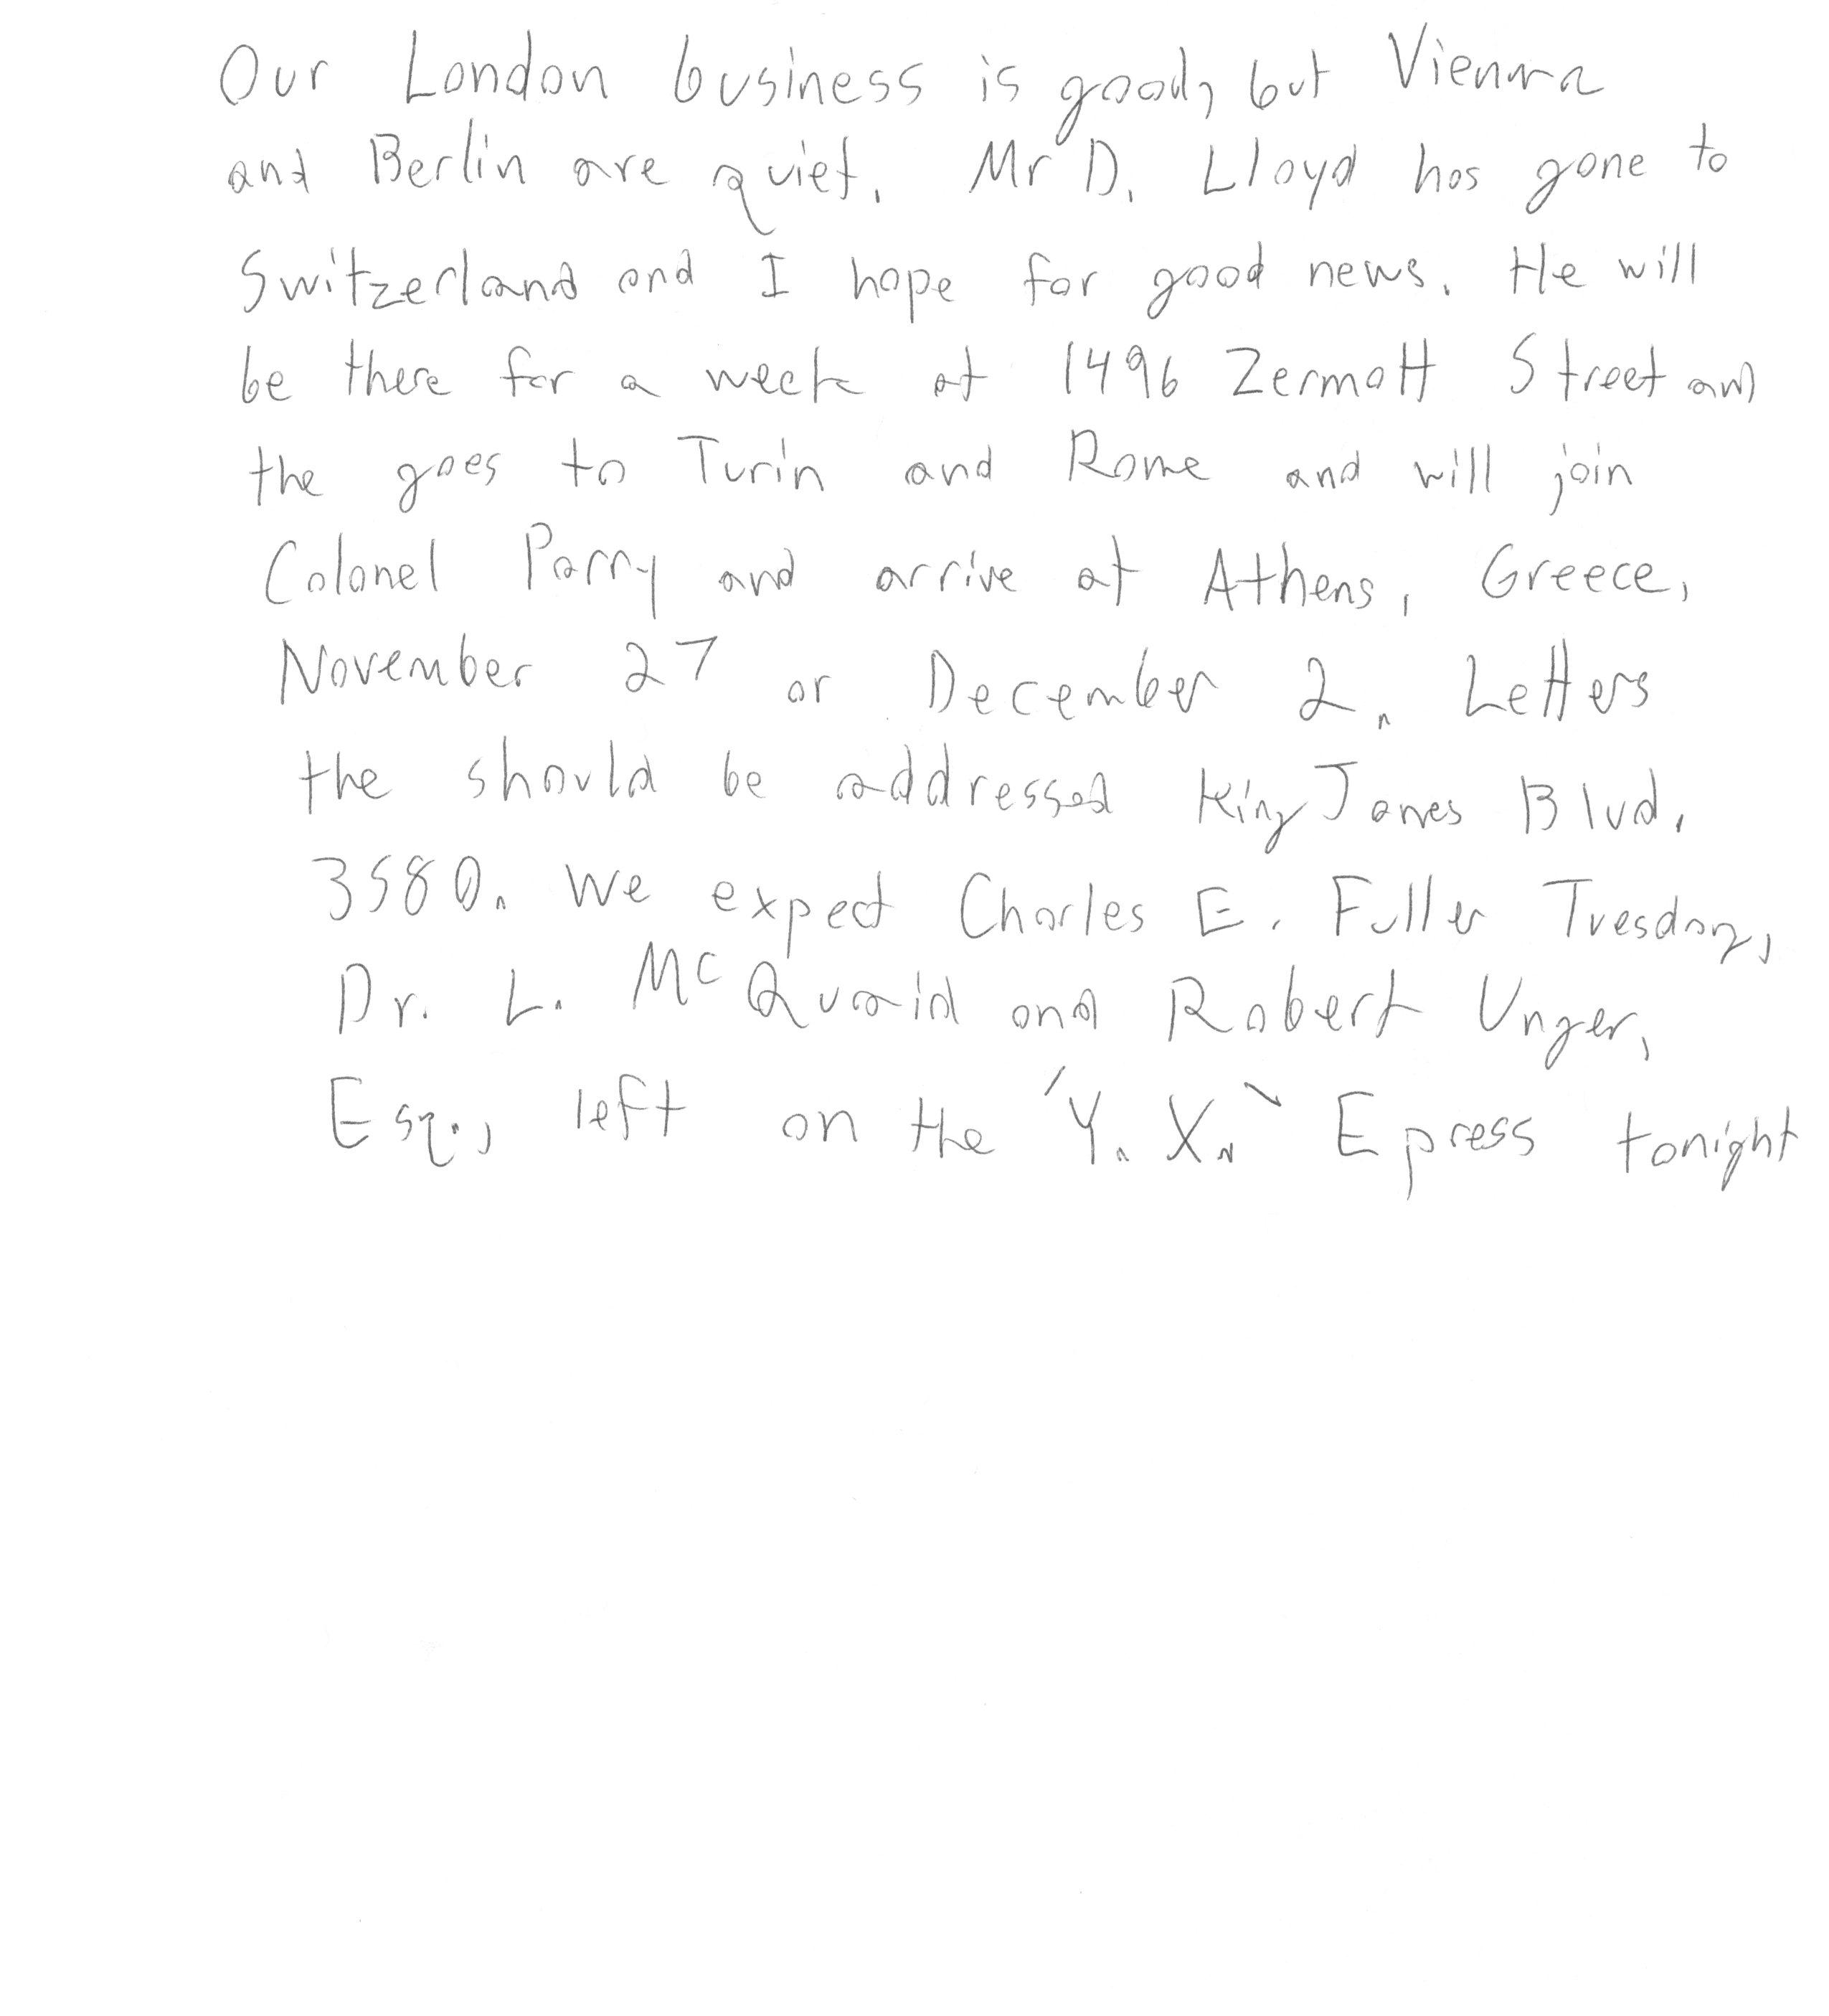 Our London business is good, but Vienna
and Berlin are quiet. Mr D. Lloyd has gone to
Switzerland and I hope for good news. He will
be there for a week at 1496 Zermott Street and
the goes to Turin and Rome and will join
Colonel Parry and arrive at Athens, Greece,
November 27 or December 2. Letters
the should be addressed King James Blvd.
3580. We expect Charles E. Fuller Tuesday,
Dr. L. McQuaid and Robert Unger,
Esq., left on the 'Y. X.' Epress tonight